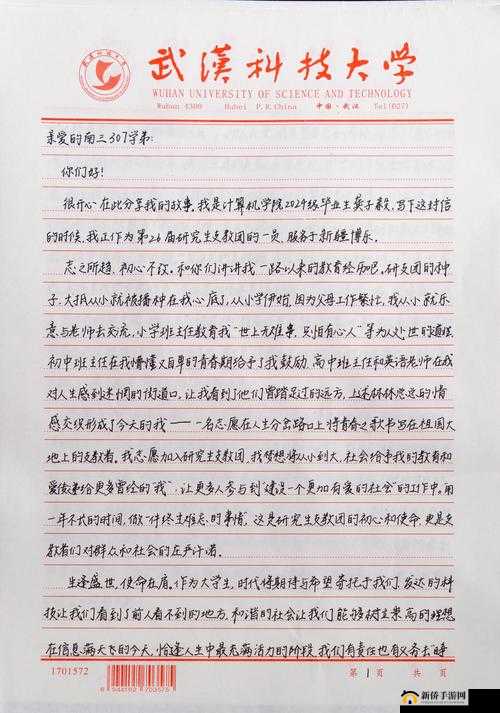 武漢科技大学
WUHAN UNIVERSITY OF SCIENCE AND TECHNOLOGY
Wuhan 4300 Hubei P.R.China 中国·武汉 Tel(027)
亲爱的南三307学弟:
你们好!
很开心在此分享我的故事。我是计算机学院2024级毕业生莫子毅,写下这封信
的时候,我正作为第26届研究生支教团的一员,服务于新疆博乐。
志之所趋,初心不改。和你们讲讲我一路以来的教育经历吧。研支团的种
子,大抵从小就被播种在我心底了,从小学伊始,因为父母工作繁忙,我从小就乐
意与老师去交流,小学班主任教育我“世上无难事,只怕有心人”等为人处世的道理
初中班主任在我懵懂又自卑的青春期给予了我鼓励,高中班主任和英语老师在我
对人生感到迷惘的街道口,让我看到了他们曾踏足过的远方,上述林林总总的情
感交织形成了今天的我——一名志愿在人生分岔路口上将青春之歌书写在祖国大
地上的支教者。我志愿加入研究生支教团,我梦想将从小到大,社会给予我的教育和
爱传递给更多曾经的“我”,让更多人参与到“建设一个更加有爱的社会”的工作中。用
一年不长的时间,做一件终生难忘的事情”,这是研究生支教团的初心和使命,更是支
教者们对群众和社会的庄严许诺。
生逢盛世,使命在肩。作为大学生,时代将期待与希望寄托于我们,发达的科
技让我们看到了前人看不到的地方,和谐的社会让我们能够树立崇高的理想
在信息满天飞的今天,恰逢人生中最充满活力的阶段,我们有责任也有义务去“睡
1701572
6944192 703575
第1页 共 页
新侨手游网